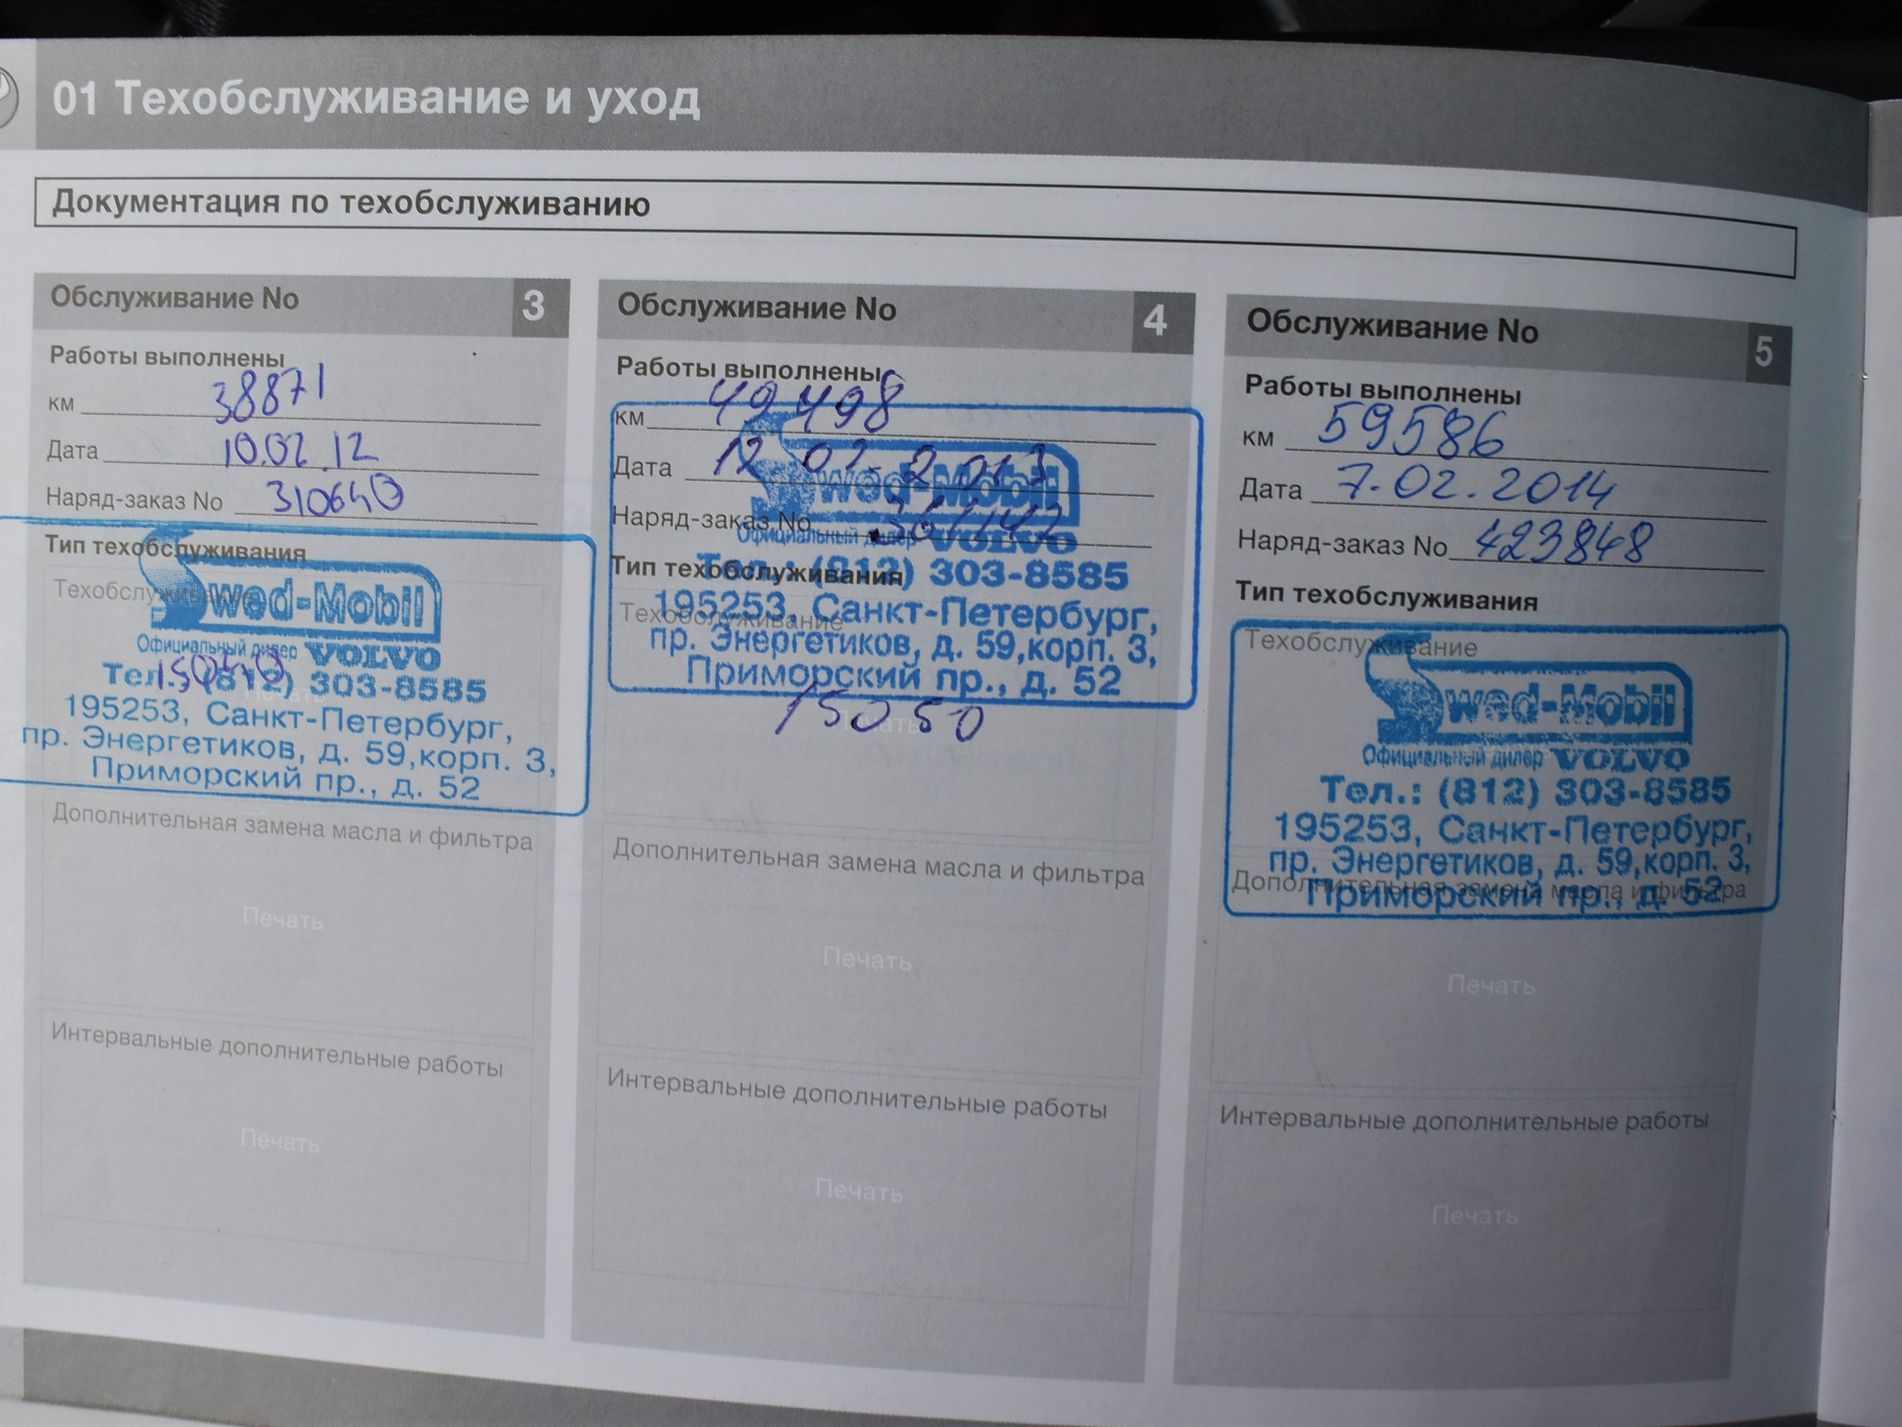 01 Техобслуживание и уход
Документация по техобслуживанию
Обслуживание No 3
Работы выполнены
км 38871
Дата 10.02.12
Наряд-заказ No 310640
Тип техобслуживания
Техобслуживание
Swed-Mobil
Официальный дилер VOLVO
Тел.: (812) 303-8585
195253, Санкт-Петербург,
пр. Энергетиков, д. 59,корп. 3,
Приморский пр., д. 52
Дополнительная замена масла и фильтра
Печать
Интервальные дополнительные работы
Печать
Обслуживание No 4
Работы выполнены
км 49498
Дата 12 02. 2013
Наряд-заказ No
Swed-Mobil
Официальный дилер VOLVO
Тип техобслуживания
Тел.: (812) 303-8585
Техобслуживание
195253, Санкт-Петербург,
пр. Энергетиков, д. 59,корп. 3,
Приморский пр., д. 52
15050
Печать
Дополнительная замена масла и фильтра
Печать
Интервальные дополнительные работы
Печать
Обслуживание No 5
Работы выполнены
км 59586
Дата 7.02.2014
Наряд-заказ No 423848
Тип техобслуживания
Техобслуживание
Swed-Mobil
Официальный дилер VOLVO
Тел.: (812) 303-8585
195253, Санкт-Петербург,
пр. Энергетиков, д. 59,корп. 3,
Приморский пр., д. 52
Дополнительная замена масла и фильтра
Печать
Интервальные дополнительные работы
Печать